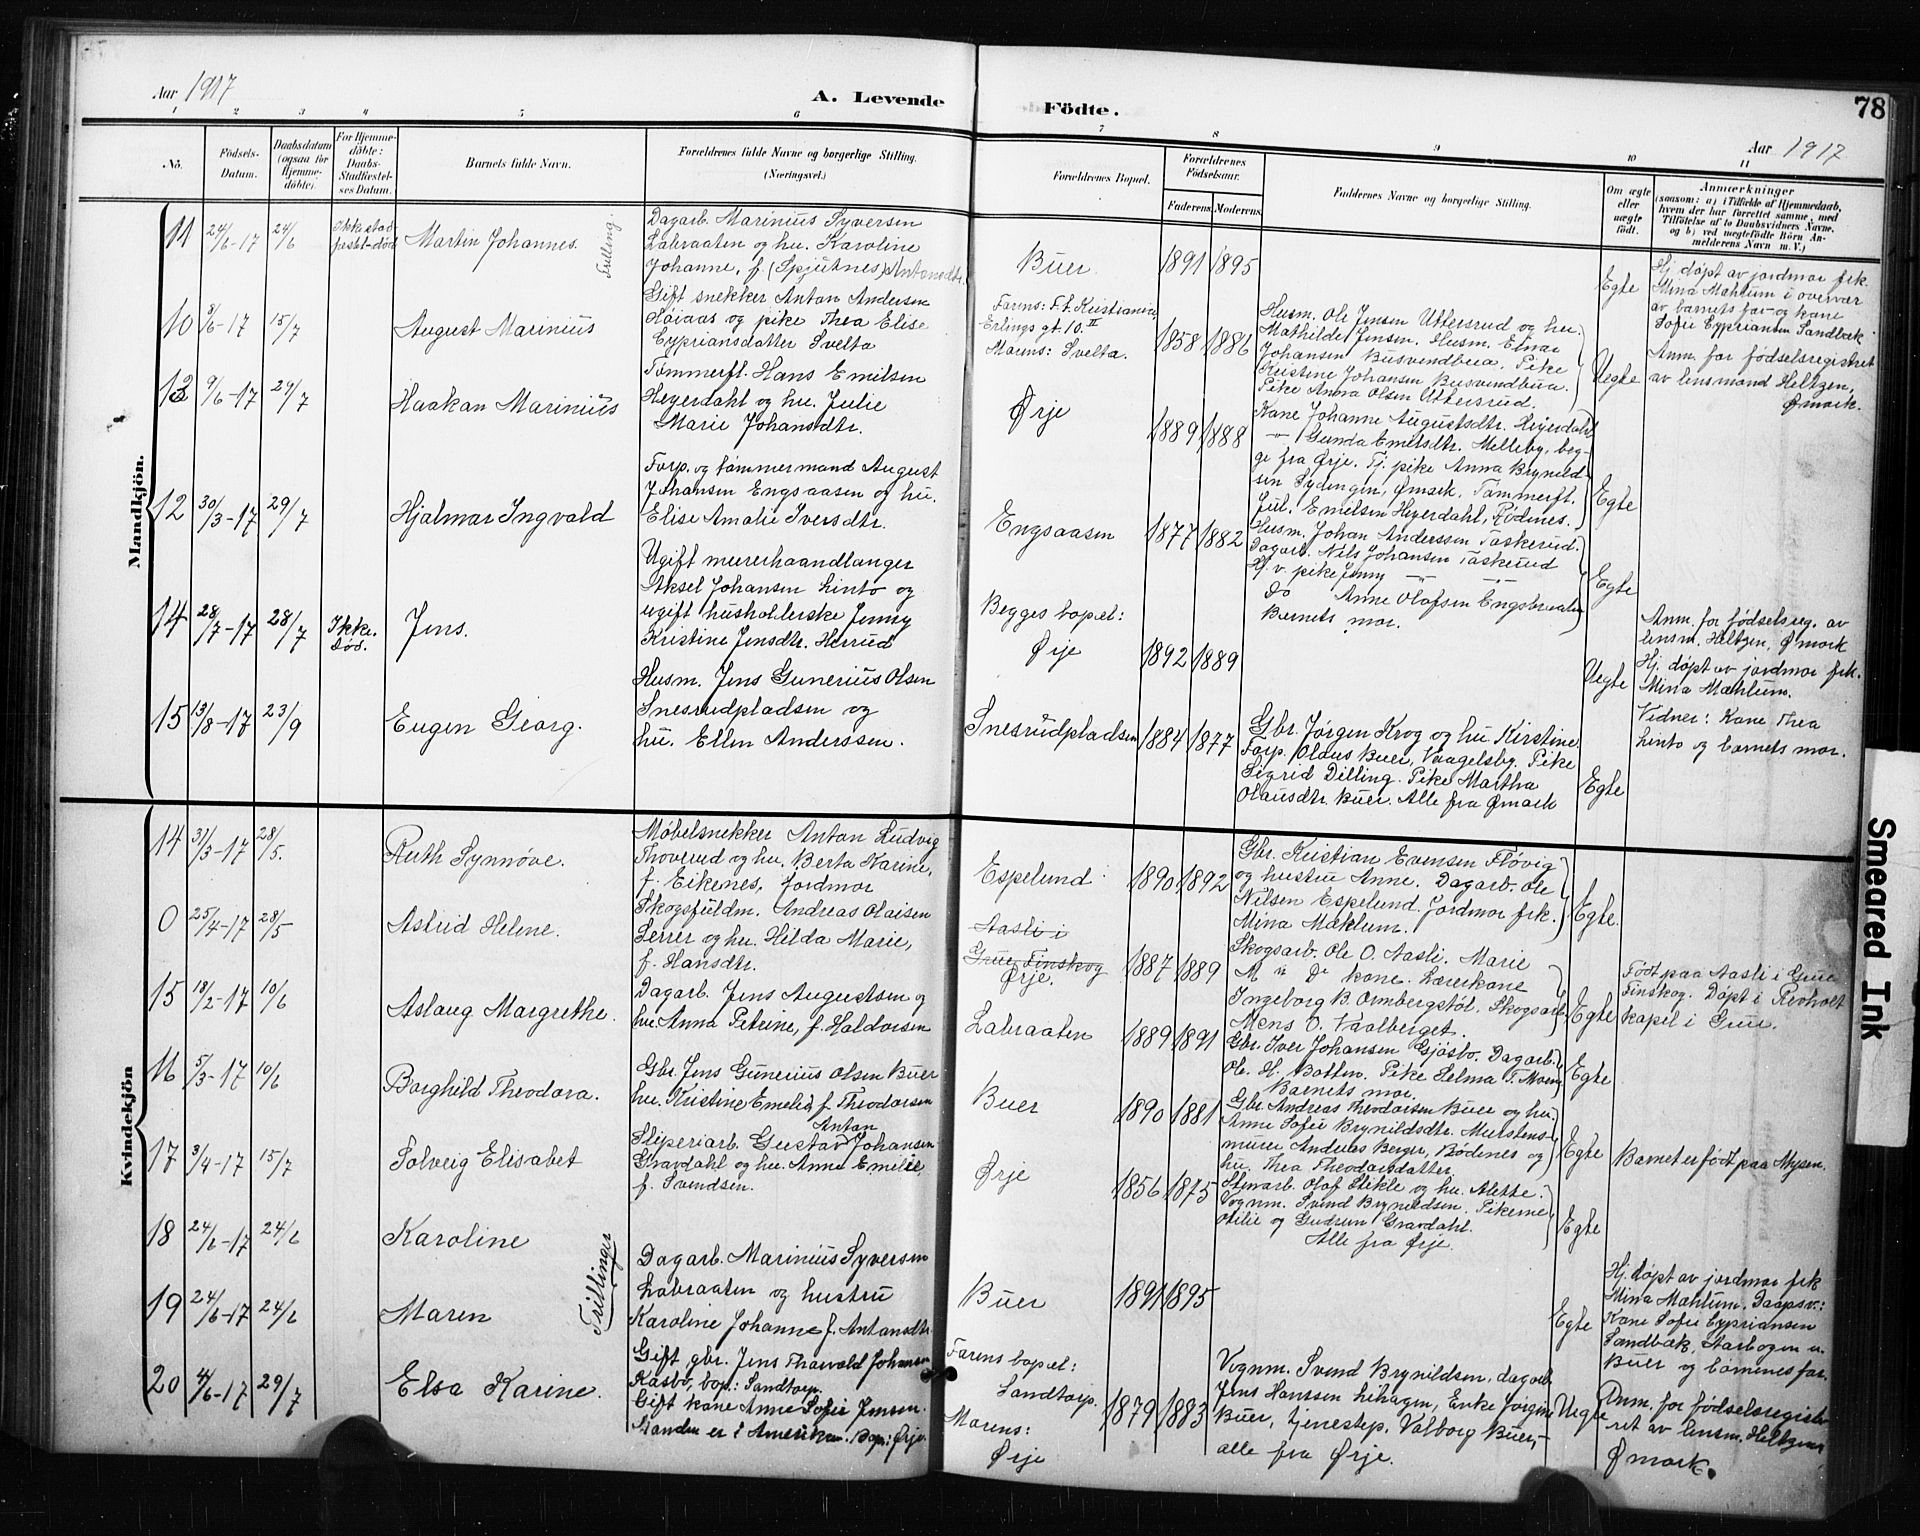 Aar 1917
A. Levende
Födte.
78
Aar 1917
1 2 3 4 5 6 7 8 9 10 11
No.
Födsels-
Datum.
Daabsdatum
(ogsaa for
Hjemme-
döbte).
For Hjemme-
döbte:
Daabs-
Stadfæstel-
ses Datum.
Barnets fulde Navn.
Forældrenes fulde Navne og borgerlige Stilling.
(Næringsvei.)
Forældrenes Bopæl.
Forældrenes
Födselsaar.
Faderens. Moderens.
Faddernes Navne og borgerlige Stilling.
Om ægte
eller
uægte
født.
Anmærkninger
(saasom: a) i Tilfælde af Hjemmedaab,
hvem der har forrettet samme, med
Tilföielse af to Daabsvidners Navne,
og b) ved uægtefödte Börn An-
melderens Navn m. V.)
Mandkjön.
11 24/6-17 24/6 Ikke stad
fæstet-död Martin Johannes. Trilling
Dagarb. Marinius Syversen
Labraaten og hu. Karoline
Johanne, f. (Spjutnes) Antonsdtr.
Buer 1891 1895
Egte
Hj. døpt av jordmor frk.
Mina Mæhlum i overvær
av barnets far og kone
Sofie Cypriansen Sandbæk
10 8/6-17 15/7 August Marinius
Gift snekker Anton Andersen
Høiaas og pike Thea Elise
Cypriansdatter Svelta
Farens: F.t. Kristiania
Erlings gt. 10 II
Morens: Svelta.
1858 1886
Husm. Ole Jensen Uttersrud og hu.
Mathilde Jensen. Husm. Einar
Johansen Busvendbua. Pike
Kristine Johansen Busvendbua.
Pike Anna Olsen Uttersrud.
Uegte
Anm. for fødselsregistret
av lensmand Heltzen,
Ømark.
13 9/6-17 29/7 Haakon Marinius
Tømmerfl. Hans Emilsen
Heyerdahl og hu. Julie
Marie Johansdtr.
Ørje
1889 1888
Kone Johanne Augustsdtr. Heyerdahl
— Gunda Emilsdtr. Melleby, beg-
ge fra Ørje. Tj. pike Anna Brynild-
sen Sydengen, Ømark. Tømmerfl.
Jul. Emilsen Heyerdahl, Rødenes.
Egte
12 30/3-17 29/7 Hjalmar Ingvald
Forp. og tømmermand August
Johansen Engsaasen og hu.
Elise Amalie Iversdtr.
Engsaasen 1877 1882
Husm. Johan Anderssen Taskerud.
Dagarb. Nils Johansen Taskerud
Hj. v. pike Jenny —"— —"—
do Anne Olafsen Engsbraaten
Barnets mor.
Egte
14 28/7-17 28/7 Ikke.
död. Jens.
Ugift murerhaandlanger
Aksel Johansen Linto og
ugift husholderske Jenny
Kristine Jensdtr. Herrud
Begges bopæl:
Ørje
1892 1889
Uegte
Anm. for fødselsreg. av
lensm. Heltzen, Ømark
Hj. døpt av jordmor frk.
Mina Mæhlum.
Vidner: Kone Thea
Linto og barnets mor.
15 13/8-17 23/9 Eugen Georg.
Husm. Jens Gunerius Olsen
Snesrudpladsen og
hu. Ellen Anderssen.
Snesrudpladsen 1884 1877
Gbr. Jørgen Krog og hu Kirstine
Forp. Olaus Buer, Vaagelsby. Pike
Sigrid Dilling. Pike Martha
Olausdtr. Buer. Alle fra Ømark
Egte
Kvindekjön
14 31/3-17 28/5. Ruth Synnøve.
Møbelsnekker Anton Ludvig
Thoverud og hu. Berta Karine,
f. Eikenes, Jordmor
Espelund 1890 1892
Gbr. Kristian Evensen Fløvig
og hustru Anne. Dagarb. Ole
Nilsen Espelund. Jordmor frk.
Mina Mæhlum.
Egte.
0 25/4-17 28/5 Astrid Helene.
Skogsfuldm. Andreas Olaisen
Lerrer og hu. Hilda Marie,
f. Hansdtr.
Aasli i
Grue Finskog
Ørje.
1887 1889
Skogsarb. Ole O. Aasli. Marie
M " Do kone. Lærerkone
Ingeborg B. Ormbergstøl. Skogsarb.
Mens O. Vaalberget.
Egte
Født paa Aasli i Grue
Finskog. Døpt i Revholt
kapel i Grue.
15 18/2-17 10/6 Aslaug Margrethe.
Dagarb. Jens Augustsen og
hu. Anna Petrine, f. Haldorsen
Labraaten 1889 1891
Gbr. Iver Johansen Gjøsbo. Dagarb.
Ole H. Botten. Pike Selma T. Moen,
Barnets mor.
Egte
16 5/3-17 10/6 Borghild Theodora.
Gbr. Jens Gunerius Olsen Buer
hu. Kristine Emelie, f. Theodorsen
Buer 1890 1881
Gbr. Andreas Theodorsen Buer og hu.
Anne Sofie Brynildsdtr. Murstens-
murer Andreas Berger, Rødenes og
hu. Thea Theodorsdatter.
Egte
Barnet er født paa Mysen.
17 3/4-17 15/7 Solveig Elisabet
Sliperiarb. Gustav Anton Johansen
Gravdahl og hu. Anne Emilie,
f. Svendsen.
Ørje 1856 1875
Stenarb. Olaf Stikle og hu. Alette.
Vognm. Svend Brynildsen. Pikerne
Otilie og Gudrun Gravdahl.
Alle fra Ørje.
Egte
18 24/6-17 24/6 Karoline
19 24/6-17 24/6 Maren
Trillinger
Dagarb. Marinius Syversen
Labraaten og hustru
Karoline Johanne f. Antonsdtr.
Buer 1891 1895
Egte
Hj. døpt av jordmor frk
Mina Mæhlum. Daapsv.:
Kone Sofie Cypriansen
Sandbæk,
Buer og børnenes far.
20 4/6-17 29/7 Elsa Karine.
Gift gbr. Jens Thorvald Johansen
Kasbo, bop.: Sandtorp.
Gift kone Anne Sofie Jensen.
Manden er i Amerika. Bop: Ørje.
Farens bopæl:
Sandtorp.
Morens:
Ørje
1879 1883
Vognm. Svend Brynildsen, dagarb.
Jens Hanssen Lihagen, Enke Jørgine
Buer, tjenestep. Valborg Buer,—
alle fra Ørje.
Uegte
Anm. for fødselsregist-
ret av lensm. Heltzen,
Ømark.
Smeared Ink